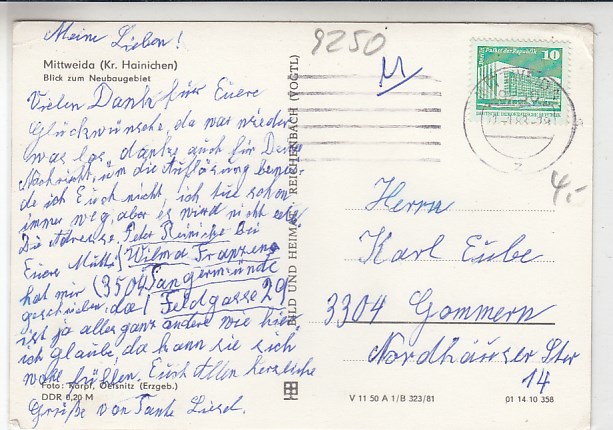 Meine Lieben!
Mittweida (Kr. Hainichen)
Blick zum Neubaugebiet
Vielen Dank für Euere
Glückwünsche, da war wieder
was los, danke auch für Deine
Nachricht, um die Auflösung benei-
de ich Euch nicht, ich tue schon
immer weg, aber es wird nicht
Die Adresse, Peter Reinicke bei
Euere Mutti Wilma Franzen
hat mir (3504 Tangermünde
geschrieben, da Feldgasse 29
ist ja alles ganz anders wie hier
ich glaube, da kann sie sich
wohl fühlen. Euch Allen herzliche
Grüße von Tante Liesel.
Foto: Karpf, Oelsnitz (Erzgeb.)
DDR 0,20 M
BILD UND HEIMAT REICHENBACH (VOGTL)
9250
M
Palast der Republik 10
4,-
Herrn
Karl Eube
3304 Gommern
Nordhäuser Str
14
V 11 50 A 1/B 323/81
01 14 10 358